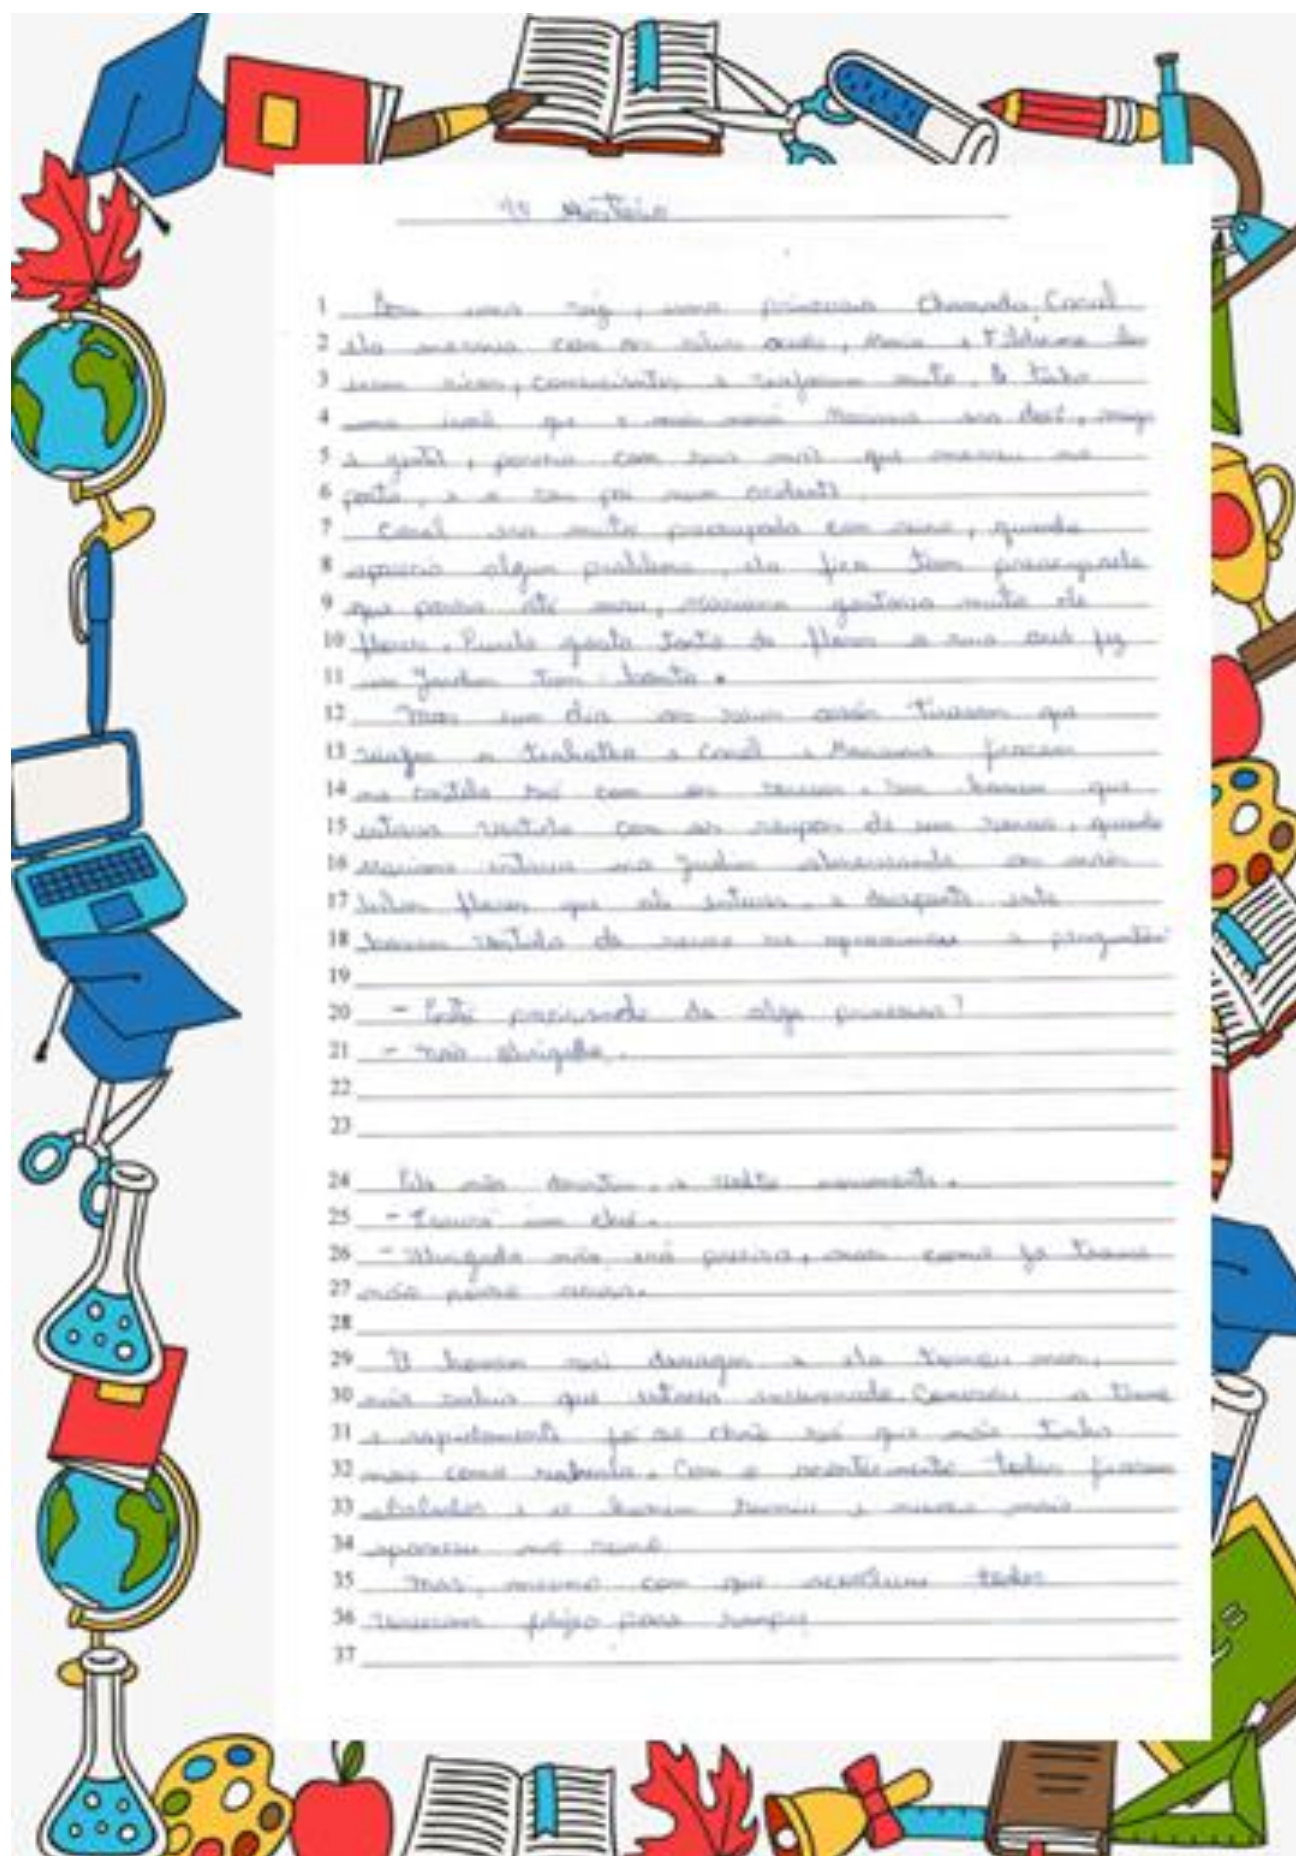 O Mistério
1 Era uma vez, uma princesa chamada Coral
2 ela morava com os seus avós, Maria e
3 eram ricos, e viajavam muito,
4 uma irmã que é mais nova Mariana era doce, meiga
5 e gentil, porem com sua mãe que morreu no
6 parto, e o seu pai num acidente.
7 Coral era muito preocupada com reino, quando
8 aparecia algum problema, ela fica tam preocupada
9 que passa até mau, Mariana gostava muito de
10 flores. gosta tanto de flores a sua avó fez
11 um Jardim tam bonito.
12 Mas um dia os seus avós tiveram que
13 viajar a trabalho e Coral e Mariana ficaram
14 no castelo só com os servos. Um homem que
15 estava vestido com as roupas de um servo, quando
16 Mariana estava no Jardim observando as mais
17 belas flores que ali estava. e derepente este
18 homem vestido de servo se aproximou e perguntou
19
20 - Está precisando de algo princesa?
21 - não obrigada.
22
23
24 Ele não desistiu. e volta novamente.
25 - Trouxe um chá.
26 - Obrigada não era preciso, mas como ja trouxe
27 não posso recusar.
28
29 O homem e ela tomou mas,
30 não sabia que estava envenenado. Começou a
31 e rapidamente foi ao chão só que não tinha
32 mais como salvala. Com o acontecimento todos ficaram
33 abalados e o homem sumiu e nunca mais
34 apareceu no reino
35 Mas, mesmo com que aconteceu todos
36 viveram felizes para sempre
37